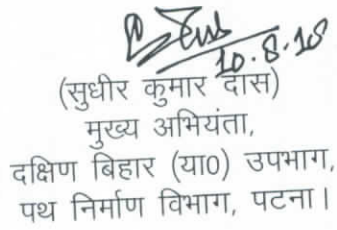 10.8.18
(सुधीर कुमार दास)
मुख्य अभियंता,
दक्षिण बिहार (या0) उपभाग,
पथ निर्माण विभाग, पटना।